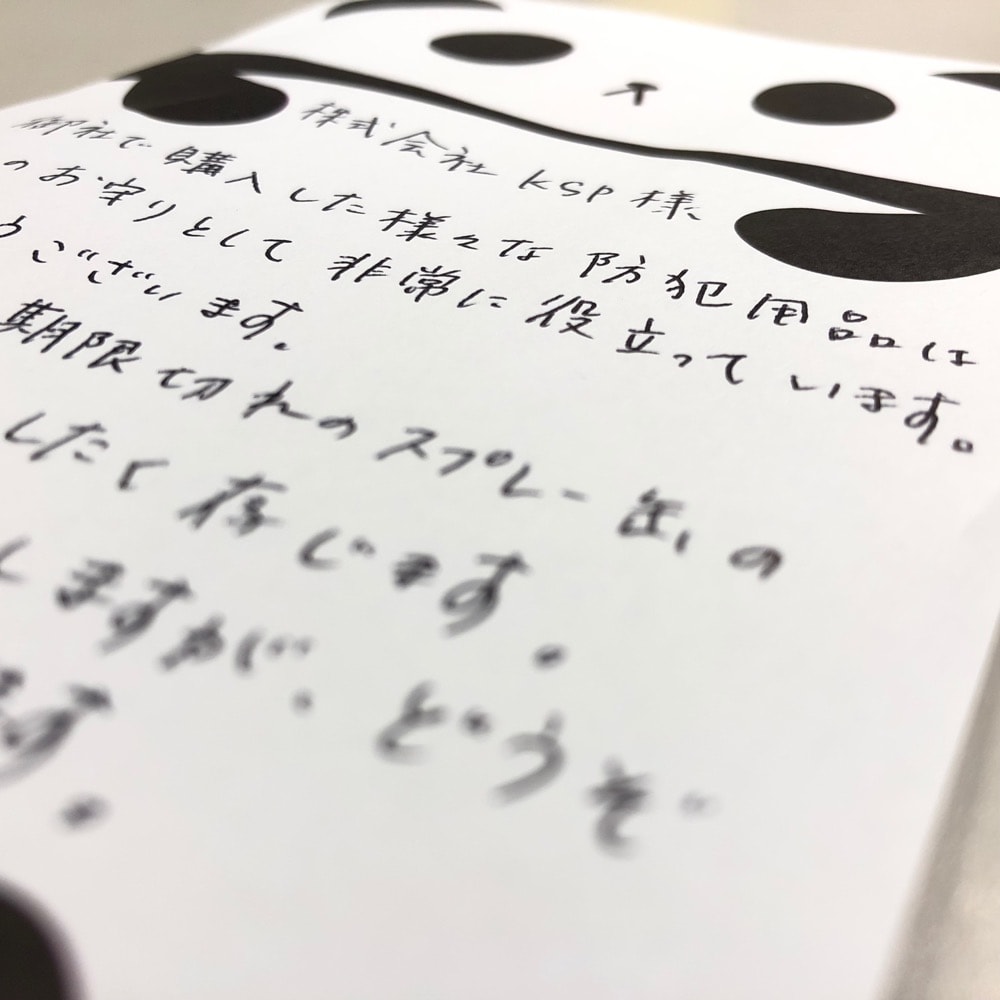 株式会社 KSP 様
御社で購入した様々な防犯用品は
のお守りとして非常に役立っています。
うございます。
期限切れのスプレー缶の
したく存じます。
しますが、どうぞ
ます。